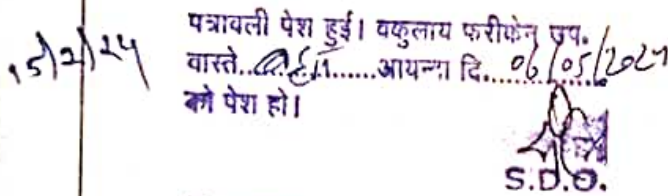 15/2/24
पत्रावली पेश हुई। वकुलाय फरीकेन उप.
वास्ते.............आयन्दा दि. 06/05/2024
को पेश हो।
S.D.O.